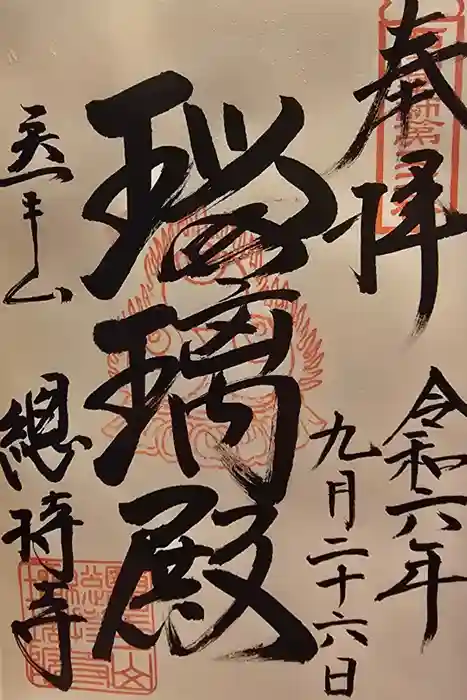 奉拝
令和六年
九月二十六日
瑠璃殿
平山
總持寺